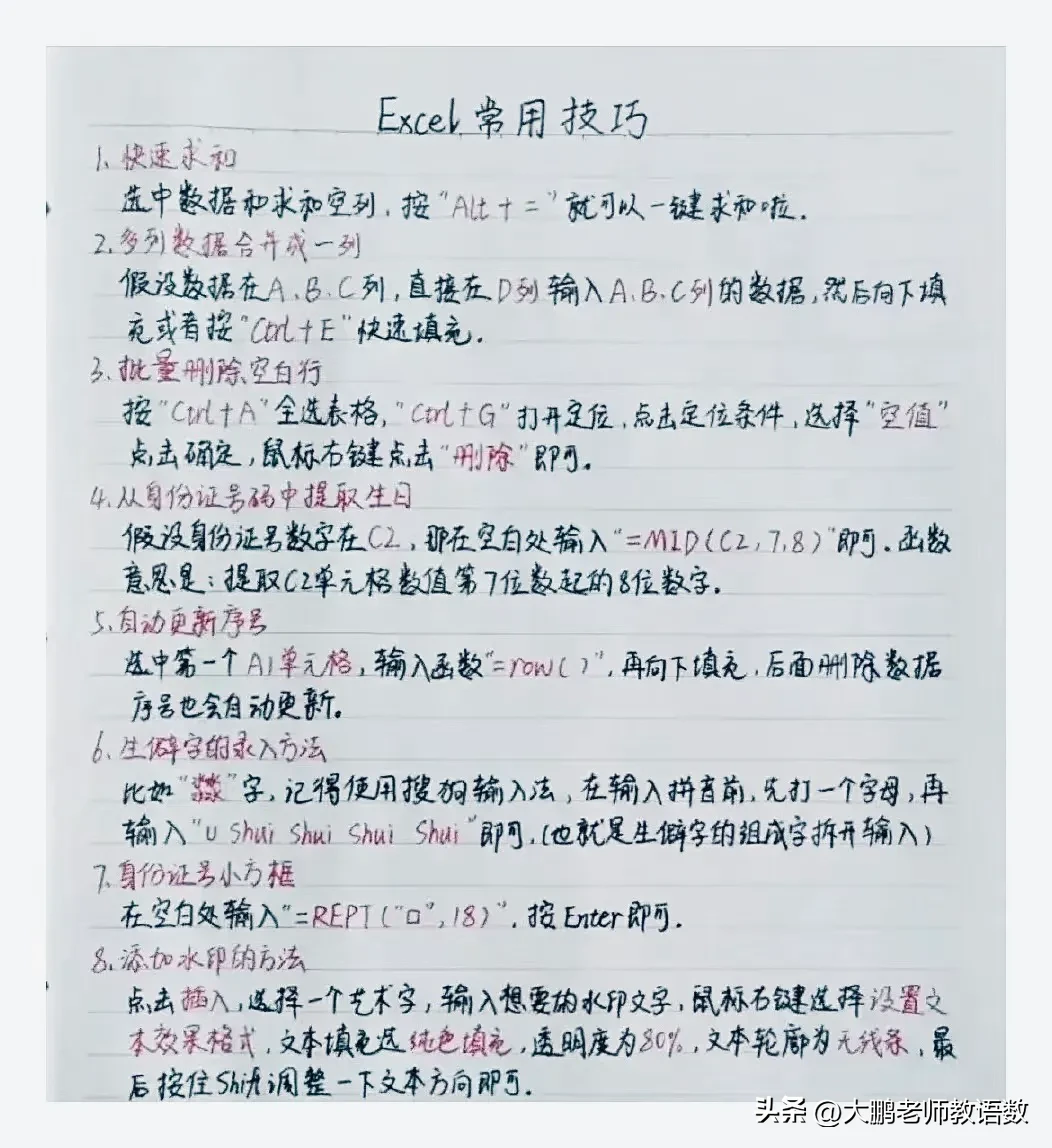 Excel常用技巧
1、快速求和
选中数据和求和空列，按“Alt+=”就可以一键求和啦.
2、多列数据合并成一列
假设数据在A、B、C列，直接在D列输入A、B、C列的数据，然后向下填
充或者按“Ctrl+E”快速填充.
3、批量删除空白行
按“Ctrl+A”全选表格，“Ctrl+G”打开定位，点击定位条件，选择“空值”
点击确定，鼠标右键点击“删除”即可。
4、从身份证号码中提取生日
假设身份证号数字在C2，那在空白处输入“=MID(C2,7,8)”即可.函数
意思是：提取C2单元格数值第7位数起的8位数字.
5、自动更新序号
选中第一个A1单元格，输入函数“=row()”，再向下填充，后面删除数据
序号也会自动更新。
6、生僻字的录入方法
比如“”字，记得使用搜狗输入法，在输入拼音前，先打一个字母，再
输入“U Shui Shui Shui Shui”即可.(也就是生僻字的组成字拆开输入)
7、身份证号小方框
在空白处输入“=REPT(“□”,18)”，按Enter即可.
8、添加水印的方法
点击插入，选择一个艺术字，输入想要的水印文字，鼠标右键选择设置文
本效果格式，文本填充选纯色填充，透明度为80%，文本轮廓为无线条，最
后按住Shift调整一下文本方向即可.
头条 @大鹏老师教语数